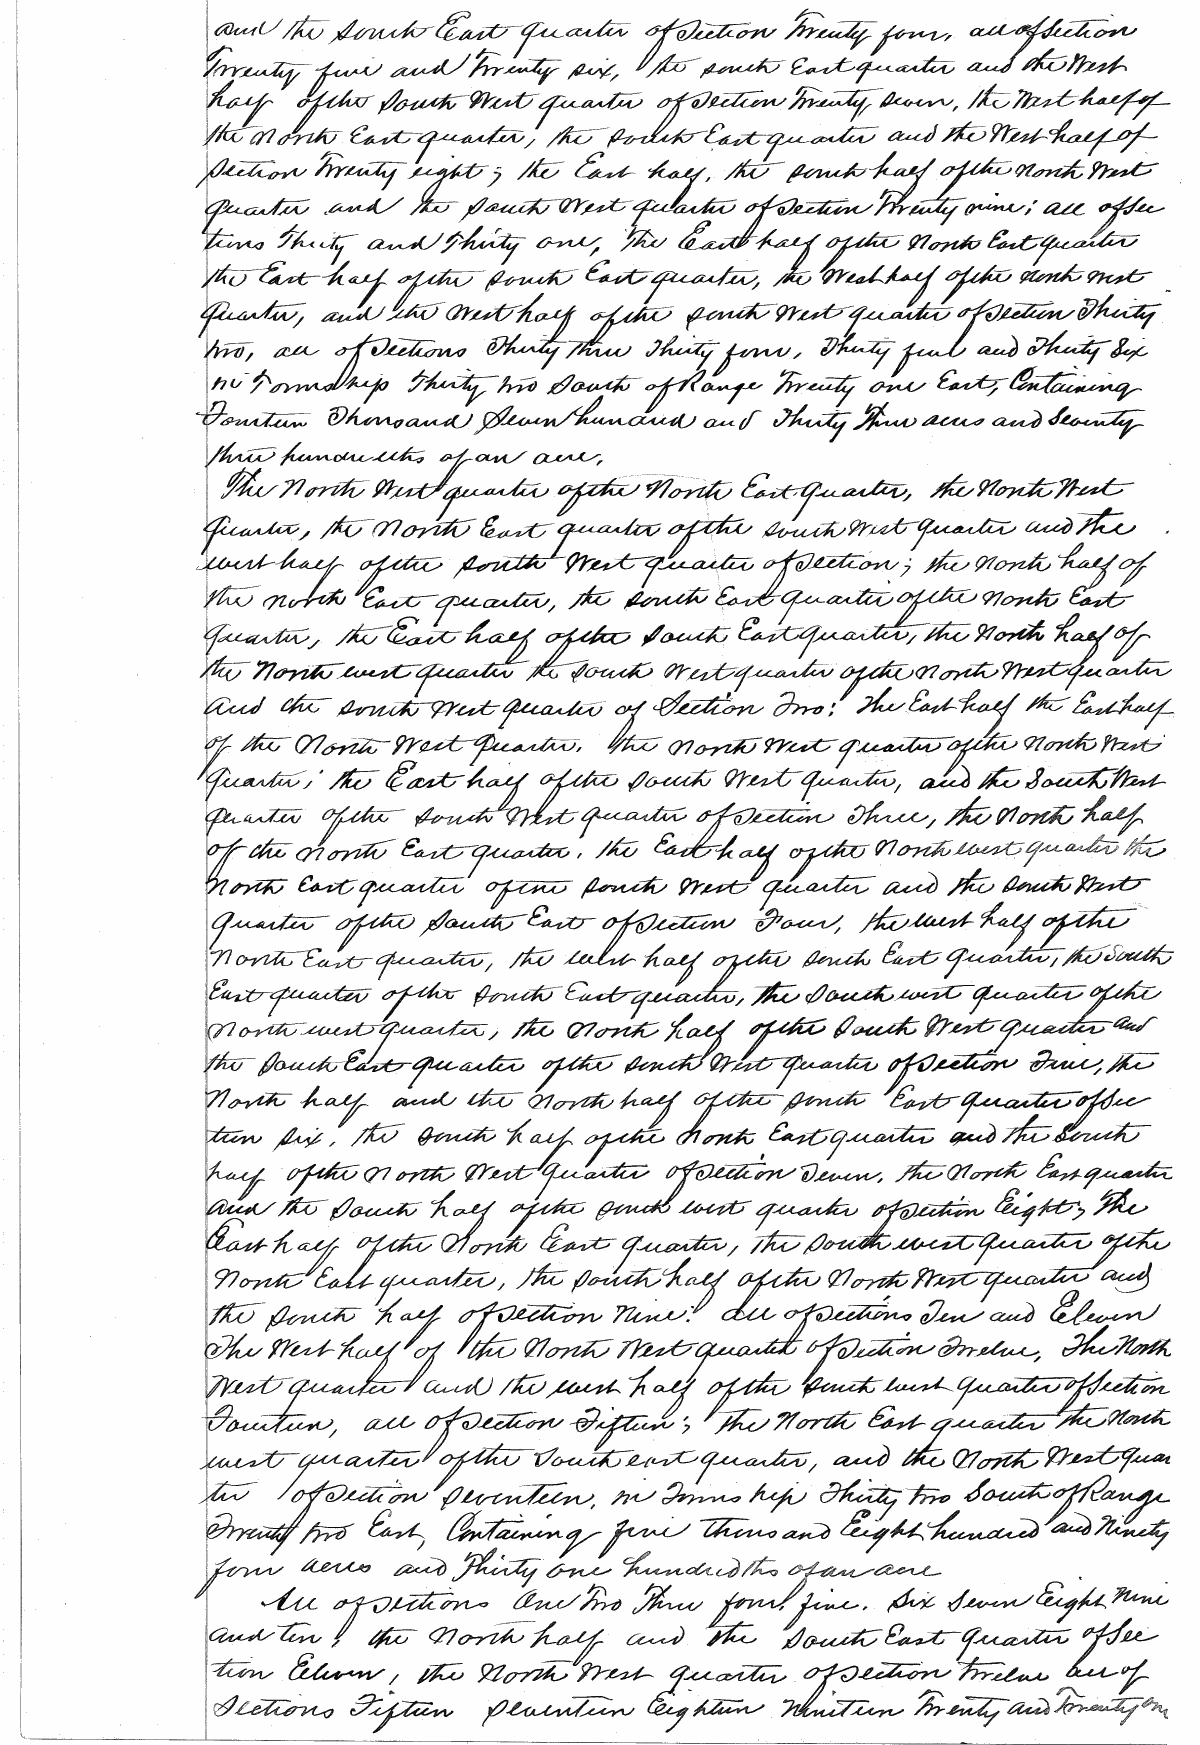 and the South East quarter of Section Twenty four, all of Section
Twenty five and Twenty six, the South East quarter and the West
half of the South West quarter of Section Twenty Seven, the West half of
the North East quarter, the South East quarter and the West half of
Section Twenty eight; the East half, the South half of the North West
quarter and the South West quarter of Section Twenty nine; all of Sec
tions Thirty and Thirty one, The East half of the North East quarter
the East half of the South East quarter, the West half of the North West
quarter, and the West half of the South West quarter of Section Thirty
two, all of Sections Thirty three Thirty four, Thirty five and Thirty Six
in Township Thirty two South of Range Twenty one East, Containing
Fourteen Thousand Seven hundred and Thirty Three acres and Seventy
three hundredths of an acre,
The North West quarter of the North East Quarter, the North West
Quarter, the North East quarter of the South West Quarter and the
west half of the South West quarter of Section; the North half of
the North East quarter, the South East quarter of the North East
Quarter, the East half of the South East quarter, the North half of
the North west quarter the South West quarter of the North West quarter
and the South West quarter of Section Two: The East half the East half
of the North West Quarter. the North West quarter of the North West
Quarter; the East half of the South West Quarter, and the South West
Quarter of the South West Quarter of Section Three, the North half
of the North East quarter. the East half of the North west quarter the
North East quarter of the South West quarter and the South West
Quarter of the South East of Section Four, the west half of the
North East quarter, the west half of the South East Quarter, the South
East quarter of the South East quarter, the South west quarter of the
North west quarter, the North half of the South West quarter and
the South East quarter of the South West quarter of Section Five, the
North half and the North half of the South East Quarter of Sec
tion Six, the South half of the North East quarter and the South
half of the North West Quarter of Section Seven. the North East quarter
and the South half of the South west quarter of Section Eight; The
East half of the North East quarter, the South west quarter of the
North East quarter, the South half of the North West quarter and
the South half of Section Nine: all of Sections Ten and Eleven
The West half of the North West quarter of Section Twelve, The North
West quarter and the west half of the South west Quarter of Section
Fourteen, all of Section Fifteen; the North East quarter the North
west quarter of the South east quarter, and the North West Quar
ter of Section Seventeen, in Township Thirty two South of Range
Twenty two East, Containing five thousand Eeight hundred and Ninety
four acres and Thirty one hundredths of an acre
All of Sections One Two Three four, five. Six Seven Eight Nine
and ten; the North half and the South East Quarter of Sec
tion Eleven, the North West quarter of Section twelve all of
Sections Fifteen Seventeen Eighteen Nineteen Twenty and Twenty one